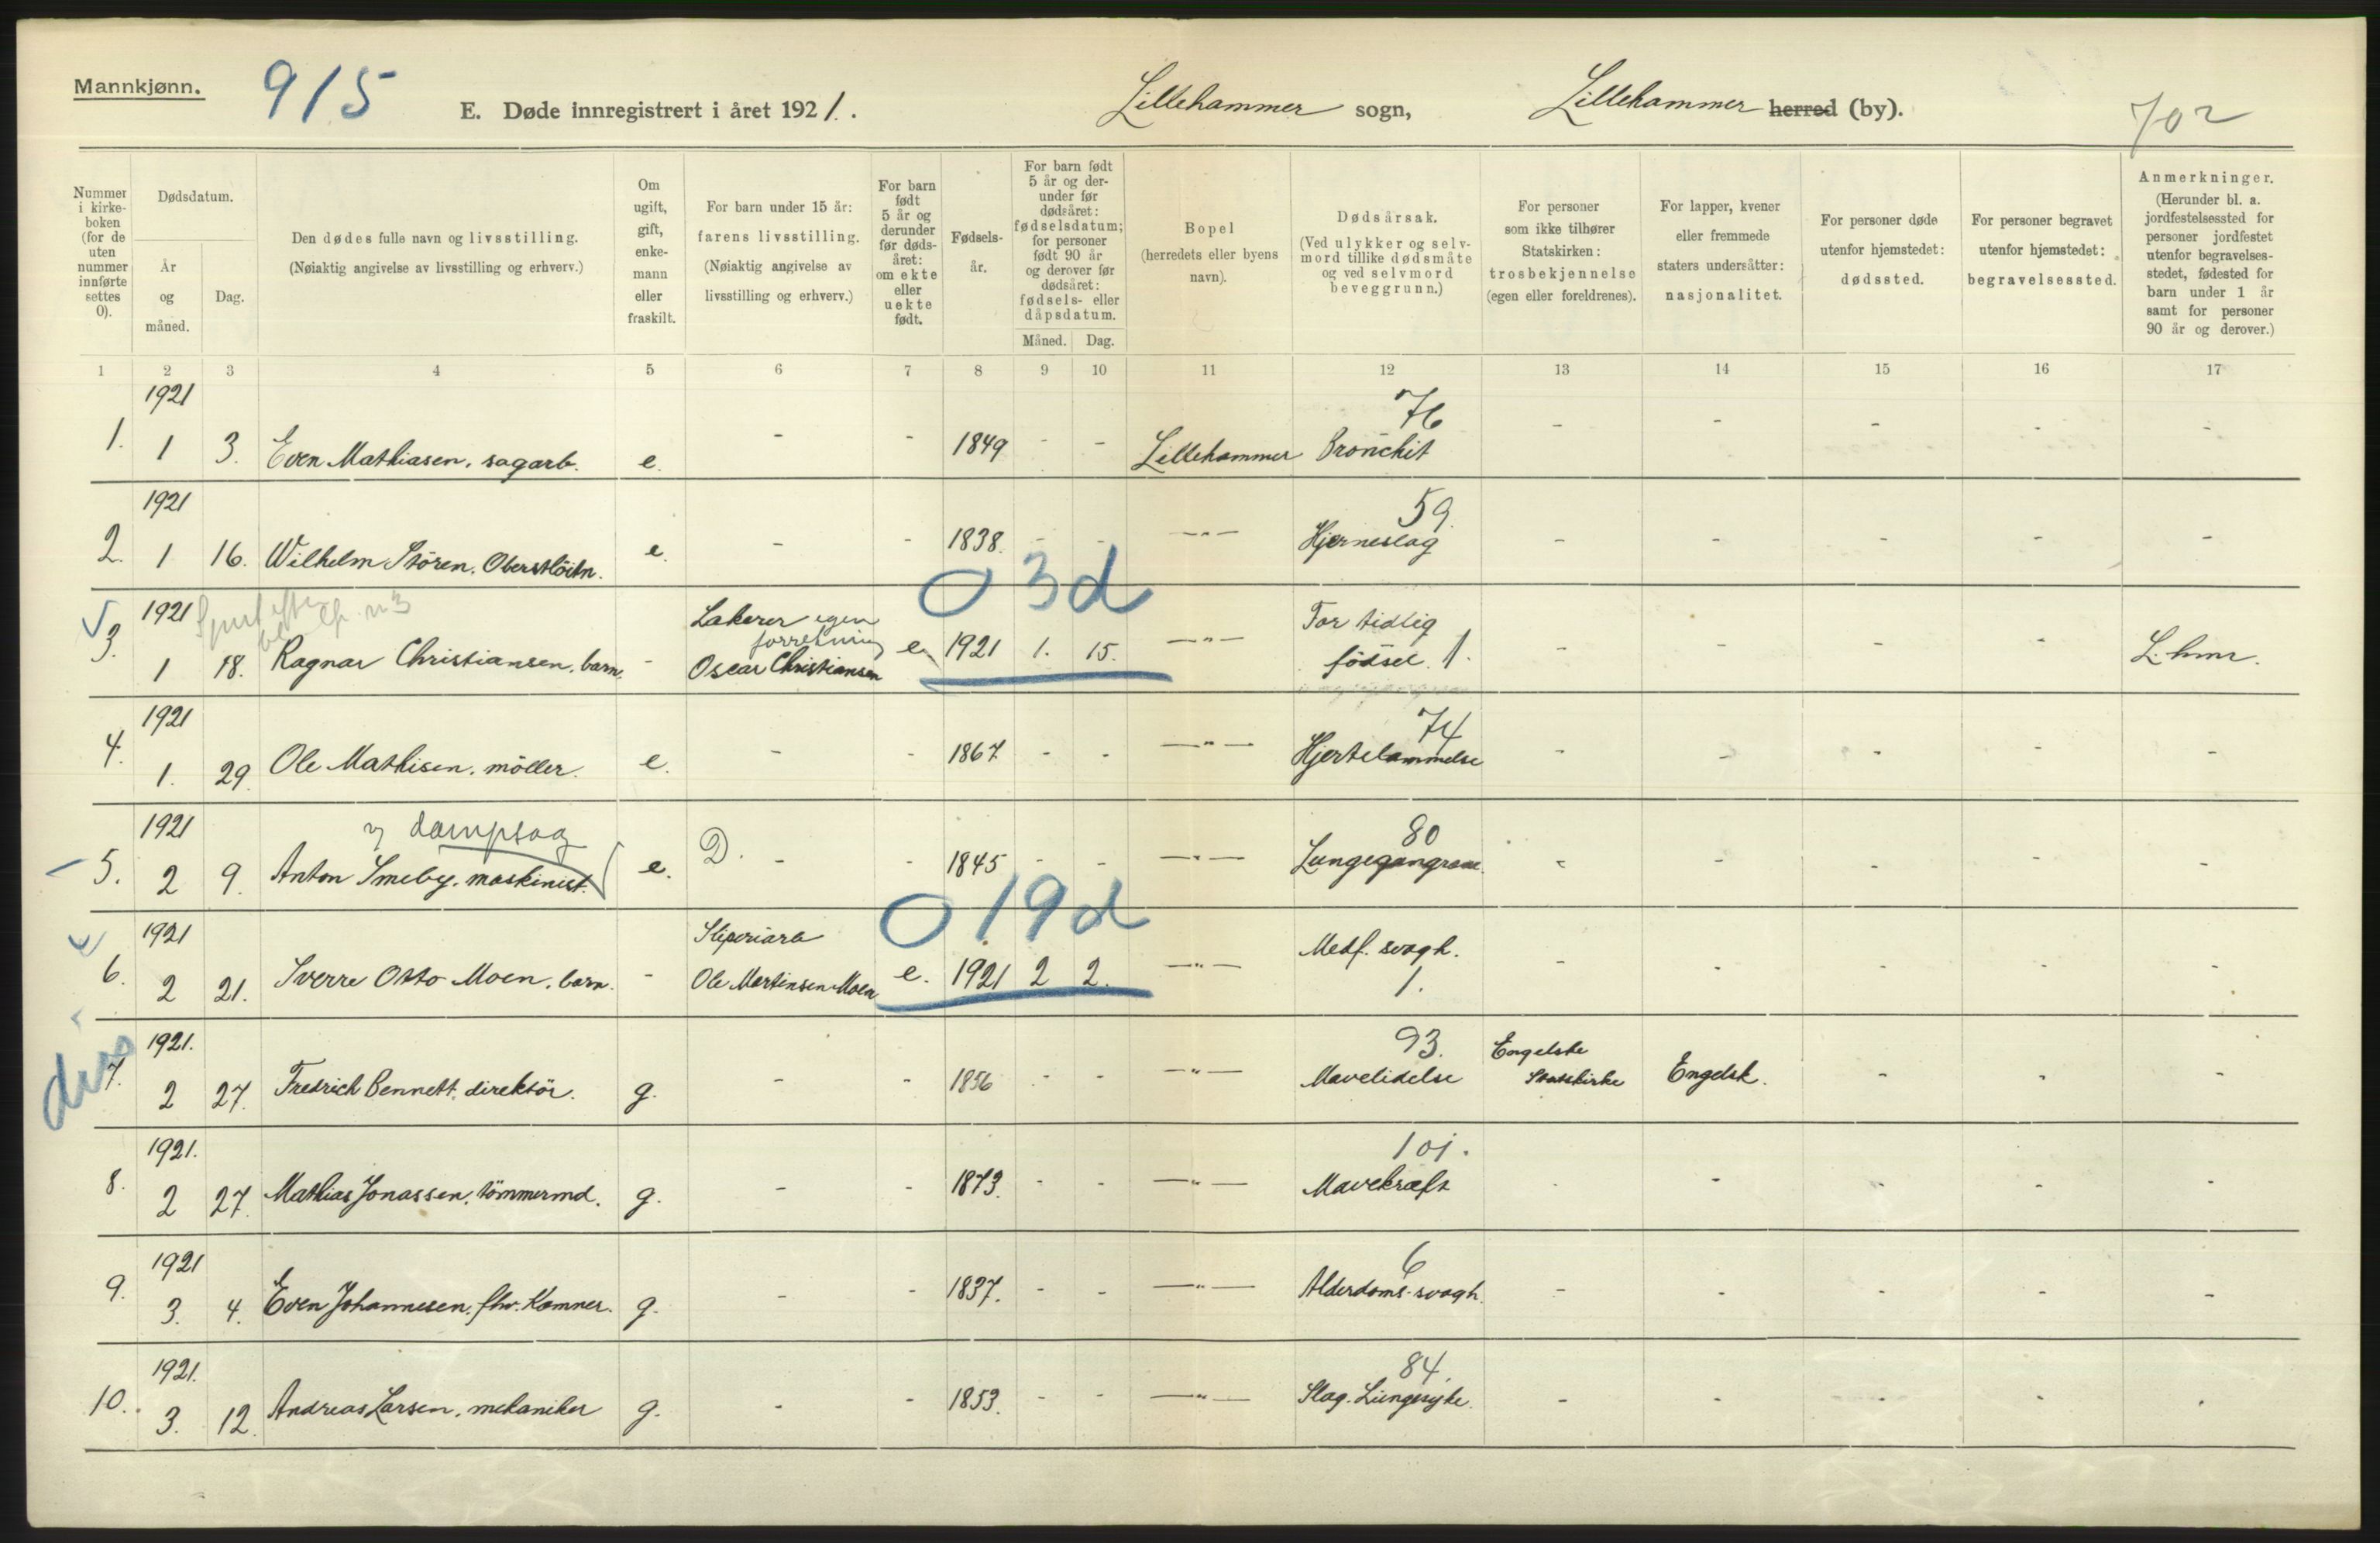 Mannkjønn.
915
E. Døde innregistrert i året 1921.
Lillehammer sogn,
Lillehammer herred (by).
702
Nummer i kirke-boken (for de uten nummer innførte settes 0).
Dødsdatum.
År og måned.
Dag.
Den dødes fulle navn og livsstilling.
(Nøiaktig angivelse av livsstilling og erhverv.)
Om ugift, gift, enke-mann eller fraskilt.
For barn under 15 år: farens livsstilling.
(Nøiaktig angivelse av livsstilling og erhverv.)
For barn født 5 år og derunder før døds-året: om ekte eller uekte født.
Fødsels-år.
For barn født 5 år og der-under før dødsåret: fødselsdatum; for personer født 90 år og derover før dødsåret: fødsels- eller dåpsdatum.
Måned. Dag.
Bopel
(herredets eller byens navn).
Dødsårsak.
(Ved ulykker og selv-mord tillike dødsmåte og ved selvmord beveggrunn.)
For personer som ikke tilhører Statskirken: trosbekjennelse (egen eller foreldrenes).
For lapper, kvener eller fremmede staters undersåtter: nasjonalitet.
For personer døde utenfor hjemstedet: dødssted.
For personer begravet utenfor hjemstedet: begravelsessted.
Anmerkninger.
(Herunder bl. a. jordfestelsessted for personer jordfestet utenfor begravelses-stedet, fødested for barn under 1 år samt for personer 90 år og derover.)
1 2 3 4 5 6 7 8 9 10 11 12 13 14 15 16 17
1921 76
1. 1 3. Even Mathiasen, sagarb. e. - - 1849 - - Lillehammer Bronchit - - - - -
1921 59.
2. 1 16. Wilhelm Stören, Oberstlöitn. e. - - 1838. - - —"— Hjerneslag - - - - -
0 3d
1921 Lakerer egen forretning For tidlig
3. 1 18. Ragnar Christiansen, barn. - Oscar Christiansen e. 1921 1. 15. —"— födsel. 1. - - - - L.hmr.
1921 74
4. 1. 29 Ole Mathisen, möller. e. - - 1867. - - —"— Hjertelammelse - - - - -
1921 v dampsag 80
5. 2 9. Anton Smeby, maskinist. e. D. - - 1845 - - —"— Lungegangræne. - - - - -
0 19d
1921 Sliperiarb Medf. svagh.
6. 2 21. Sverre Otto Moen, barn. - Ole Martinsen Moen e. 1921 2 2. —"— 1. - - - - -
1921. 93. Engelske
7. 2 27. Fredrich Bennett, direktör. g. - - 1856 - - —"— Mavelidelse Statskirke Engelsk. - - -
1921. 101.
8. 2 27. Mathias Jonassen, tömmermd. g. - - 1873. - - —"— Mavekræft - - - - -
1921 6
9. 3. 4. Even Johannesen, fhv. Kæmner. g. - - 1837. - - —"— Alderdoms-svagh. - - - - -
1921. 84.
10. 3. 12. Andreas Larsen, mekaniker g. - - 1853. - - —"— Slag. Lungesyke. - - - - .